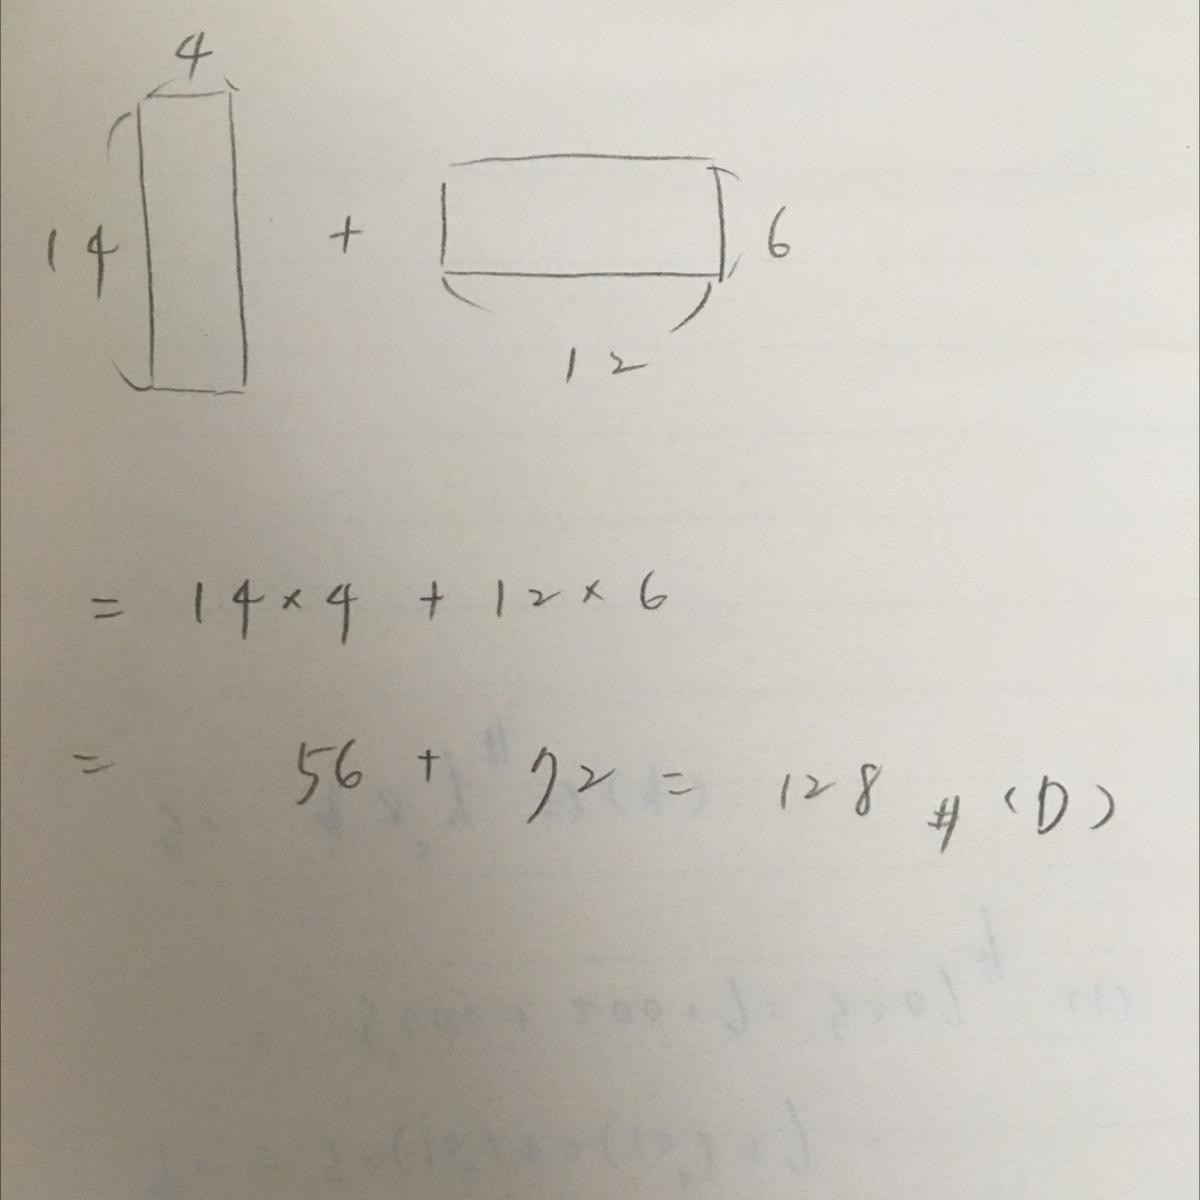 4
14 + 6
12
= 14 × 4 + 12 × 6
= 56 + 72 = 128 # (D)